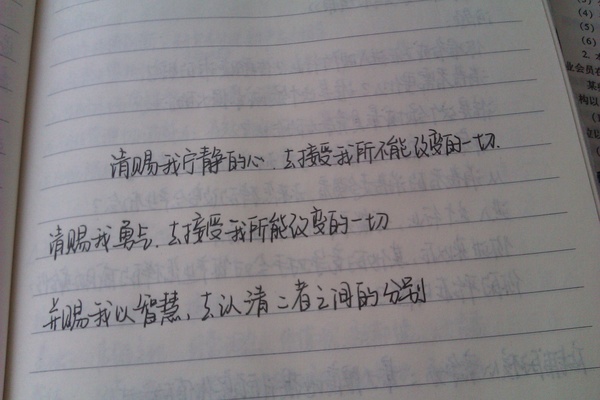 请赐我宁静的心，去接受我所不能改变的一切.
请赐我勇气，去接受我所能改变的一切
并赐我以智慧，去认清二者之间的分别
(4)
(5)
(6)
2.
业会员在
构以